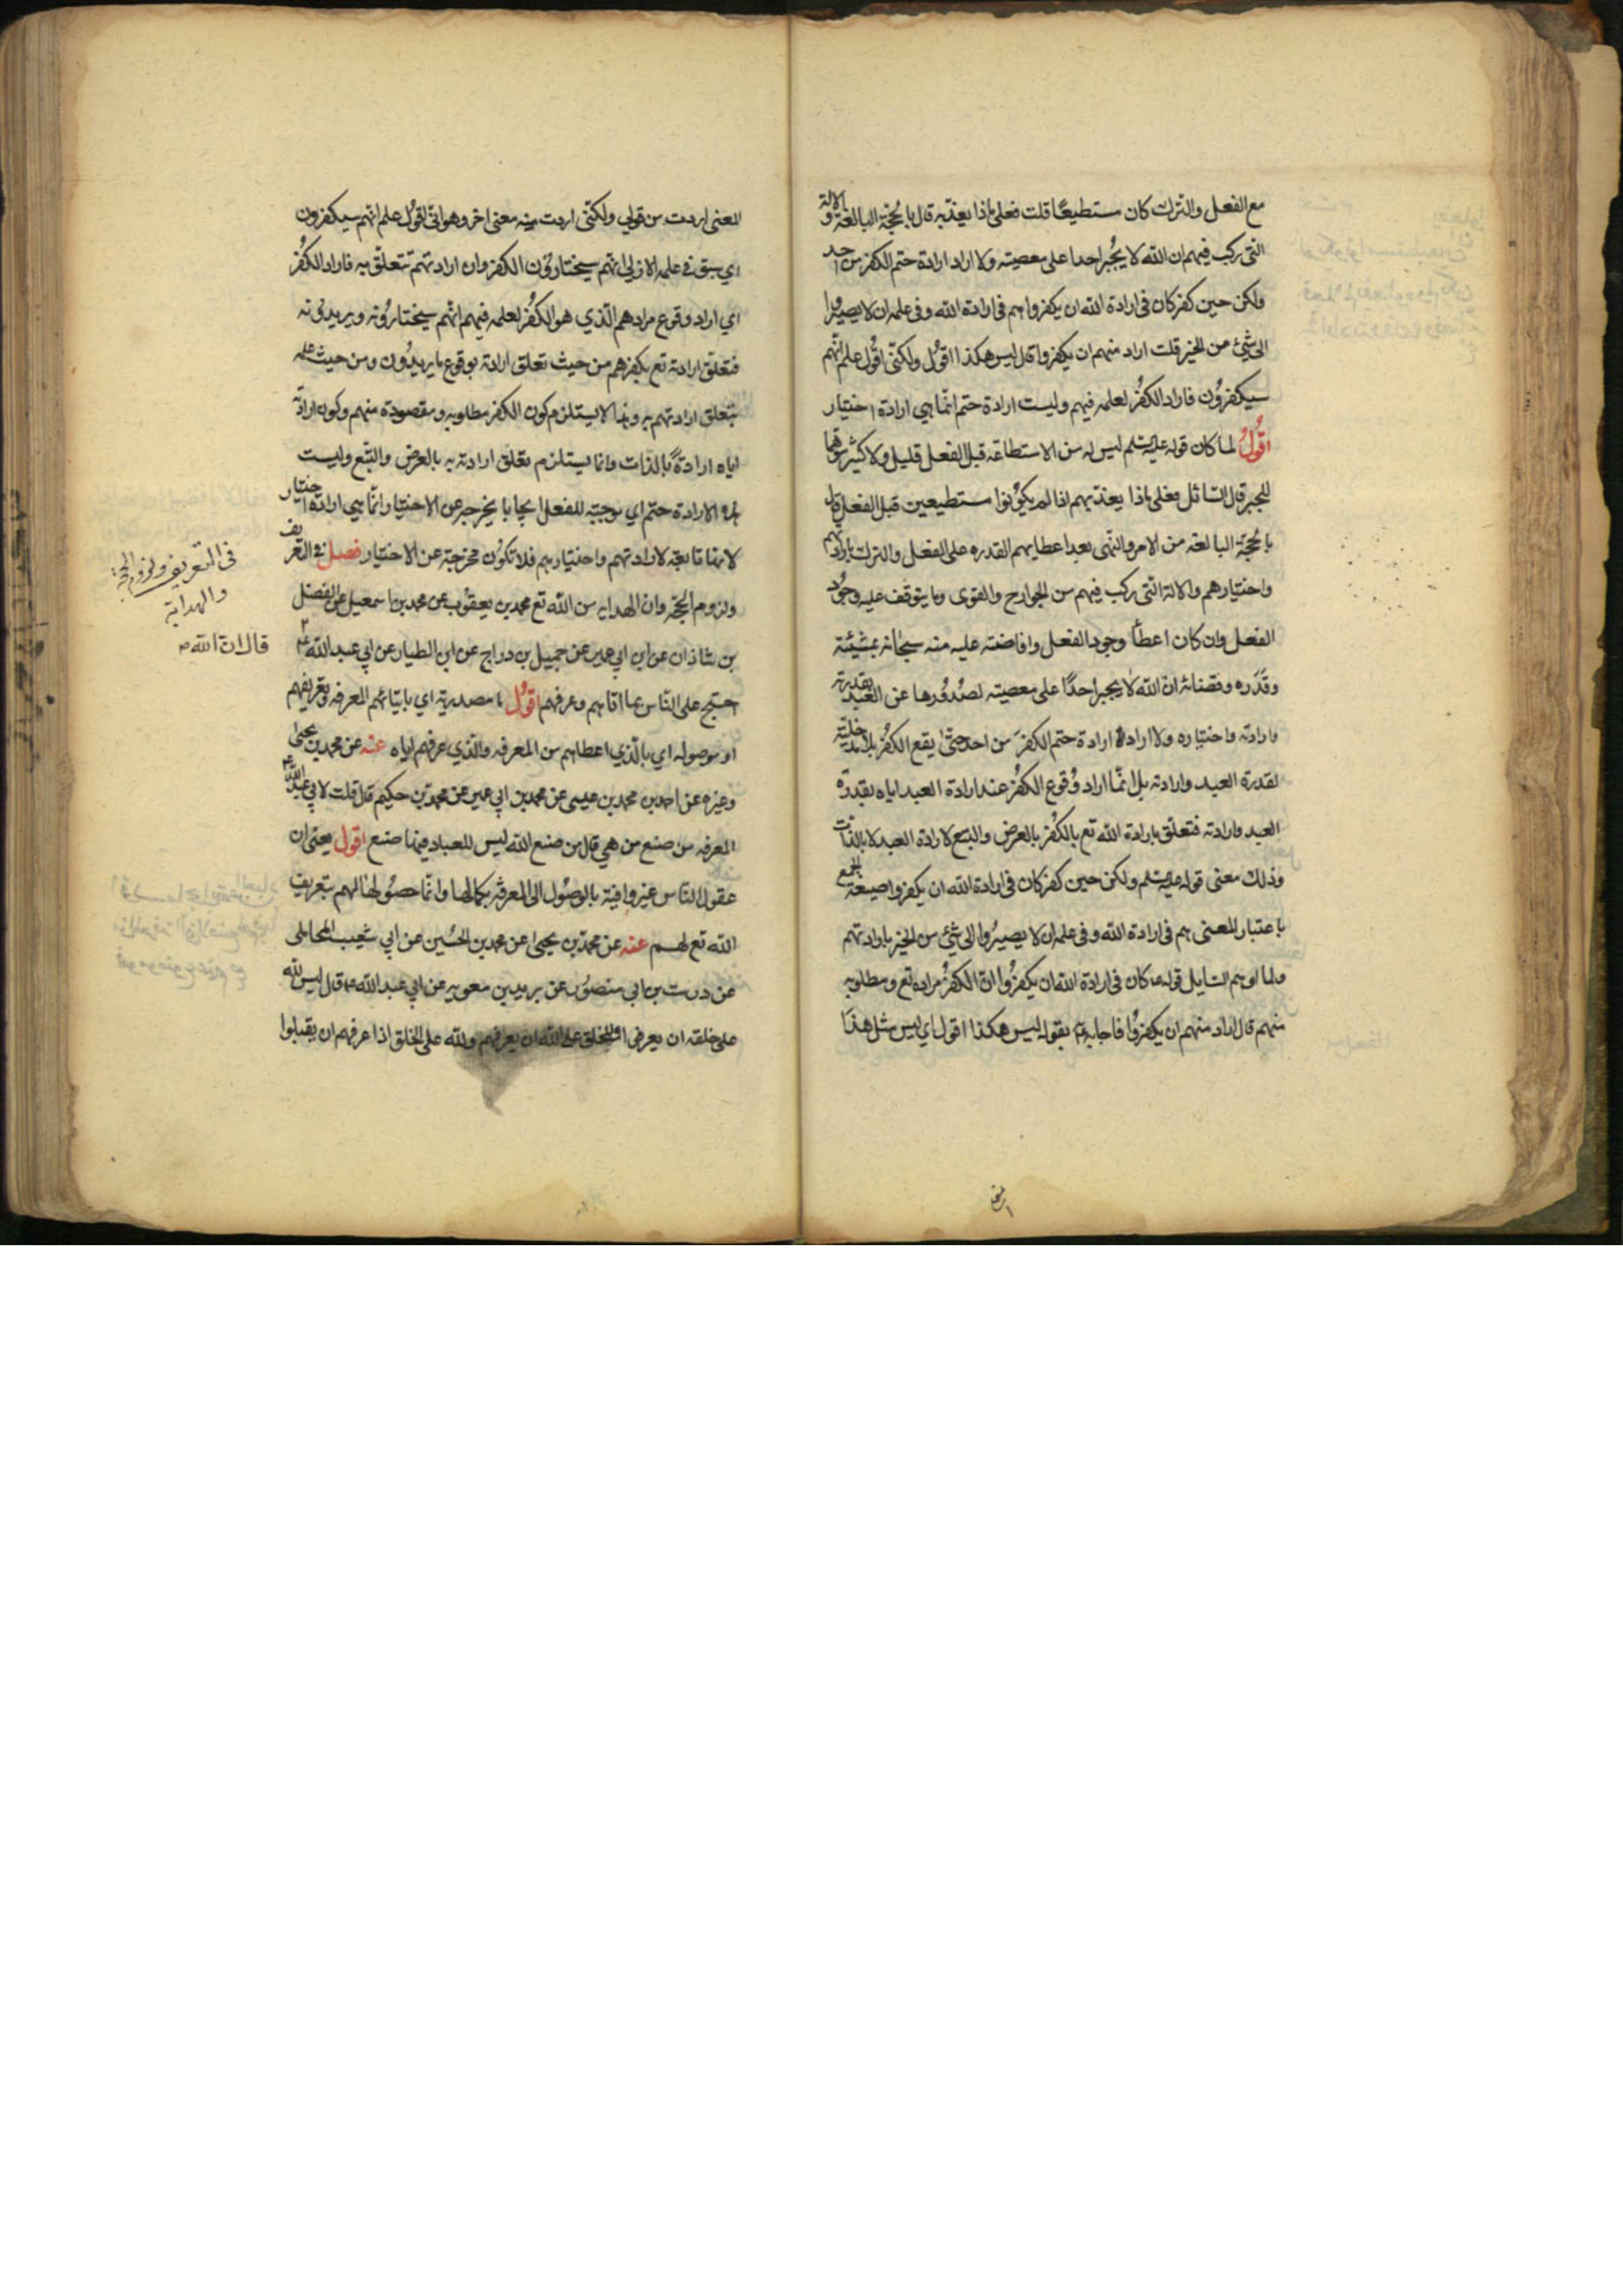 مع الفعل والترك كان مستطيعًا قلت فعلى ماذا يعذبه قال بالحجة البالغة والالة
التى ركب فيهم ان الله لا يُجبر احدا على معصيته ولا اراد ارادة حتم الكفر من احد
ولكن حين كفر كان فى ارادة الله ان يكفر وهم فى ارادة الله وفى علمه ان لا يصيروا
الى شئ من الخير قلت اراد منهم ان يكفروا قال ليس هكذا اقول ولكنّى اقول علم انّهم
سيكفرون فاراد الكفر لعلمه فيهم وليست ارادة حتم انّما هي ارادة اختيار
اقُولُ لما كان قوله عليه السلم ليس له من الاستطاعه قبل الفعل قليل ولا كثير موهما
للجبر قال السائل فعلى ماذا يعذبهم اذا لم يكونوا مستطيعين قبل الفعل قال
بالحجة البالغه من الامر والنهى بعد اعطايهم القدره على الفعل والترك بارادتهم
واختيارهم والالة التى ركب فيهم من الجوارح والقوى وما يتوقف عليه وجود
الفعل وان كان اعطا وجود الفعل وافاضته عليه منه سبحانه بمشيئته
وقدره وقضائه ان الله لا يجبر احدًا على معصيته لصُدُورها عن العبد بقدرته
وارادته واختياره ولا اراد ارادة حتم الكفرَ من احد حتّى يقع الكفر بلا مدخلية
لقدرة العبد وارادته بل انّما اراد وُقوع الكفُر عند ارادة العبد اياه بقدرة
العبد وارادته فتعلّق ارادة الله تع بالكُفر بالعرض والتبع لارادة العبد لا بالذات
وذلك معنى قوله عليه السلم ولكن حين كفر كان فى ارادة الله ان يكفر واصيغة الجمع
باعتبار المعنى هم فى ارادة الله وفى علمه ان لا يصيرُوا الى شئ من الخير بارادتهم
ولما اوهم السايل قوله كان فى ارادة الله ان يكفرُوا انّ الكفرُ مراده تع ومطلوبه
منهم قال اراد منهم ان يكفرُوا فاجابه بقوله ليس هكذا اقول اي ليس مثل هذا
المعنى اردت من قولي ولكنّى اردت منه معنى اخر وهو انّى اقولُ علم انهم سيكفرون
اي سبق فى علمه الازلى انهم سيختارُون الكفر وان ارادتهم تتعلّق به فاراد الكفُر
اي اراد وقوع مرادهم الّذي هو الكفُر لعلمه فيهم انّهم سيختارُونه ويريدُونه
فتعلّق ارادته تع بكفرهم من حيث تعلق ارادته بوقوع ما يريدُون ومن حيث علمه
بتعلق ارادتهم به وهذا لا يستلزم كون الكفر مطلوبه ومقصودة منهم وكون ارادة
اياه ارادةً بالذات وانما يستلزم تعلق ارادته به بالعرض والتبع وليست
هذه الارادة حتم اي موجبته للفعل ايجابا يخرجه عن الاختيار وانّما هي ارادة اختيار
لانها تابعة لارادتهم واختيارهم فلا تكون مخرجة عن الاختيار فصل فى التعريف
ولزوم الحجّة وان الهدايه من الله تع محمد بن يعقوب عن محمد بن اسمعيل عن الفضل
بن شاذان عن ابن ابي عمير عن جميل بن دراج عن ابن الطيار عن ابي عبد الله ع
احتج على النّاس بما اتاهم وعرفهم اقولُ ما مصدرية اي بايتائهم المعرفه وتعريفهم
او موصوله اي بالذي اعطاهم من المعرفه والذي عرفهم اياه عنه عن محمد بن يحيى
وغيره عن احمد بن محمد بن عيسى عن محمد بن ابي عمير عن محمد بن حكيم قال قلت لابي عبد الله ع
المعرفه من صنع من هي قال من صنع الله ليس للعباد فيها صنع اقول يعنى ان
عقول النّاس غير وافية بالوصُول الى المعرفة بكمالها وانّما حصُولها لهم بتعريف
الله تع لهم عنه عن محمد بن يحيى عن محمد بن الحُسين عن ابي شعيب المحاملى
عن درست بن ابي منصُور عن بريد بن معويه عن ابي عبد الله ع قال ليس لله
على خلقه ان يعرفوا وللخلق على الله ان يعرفهم ولله على الخلق اذا عرفهم ان يقبلوا
فى التعريف ولزوم الحجّة
والهداية
قال انّ الله